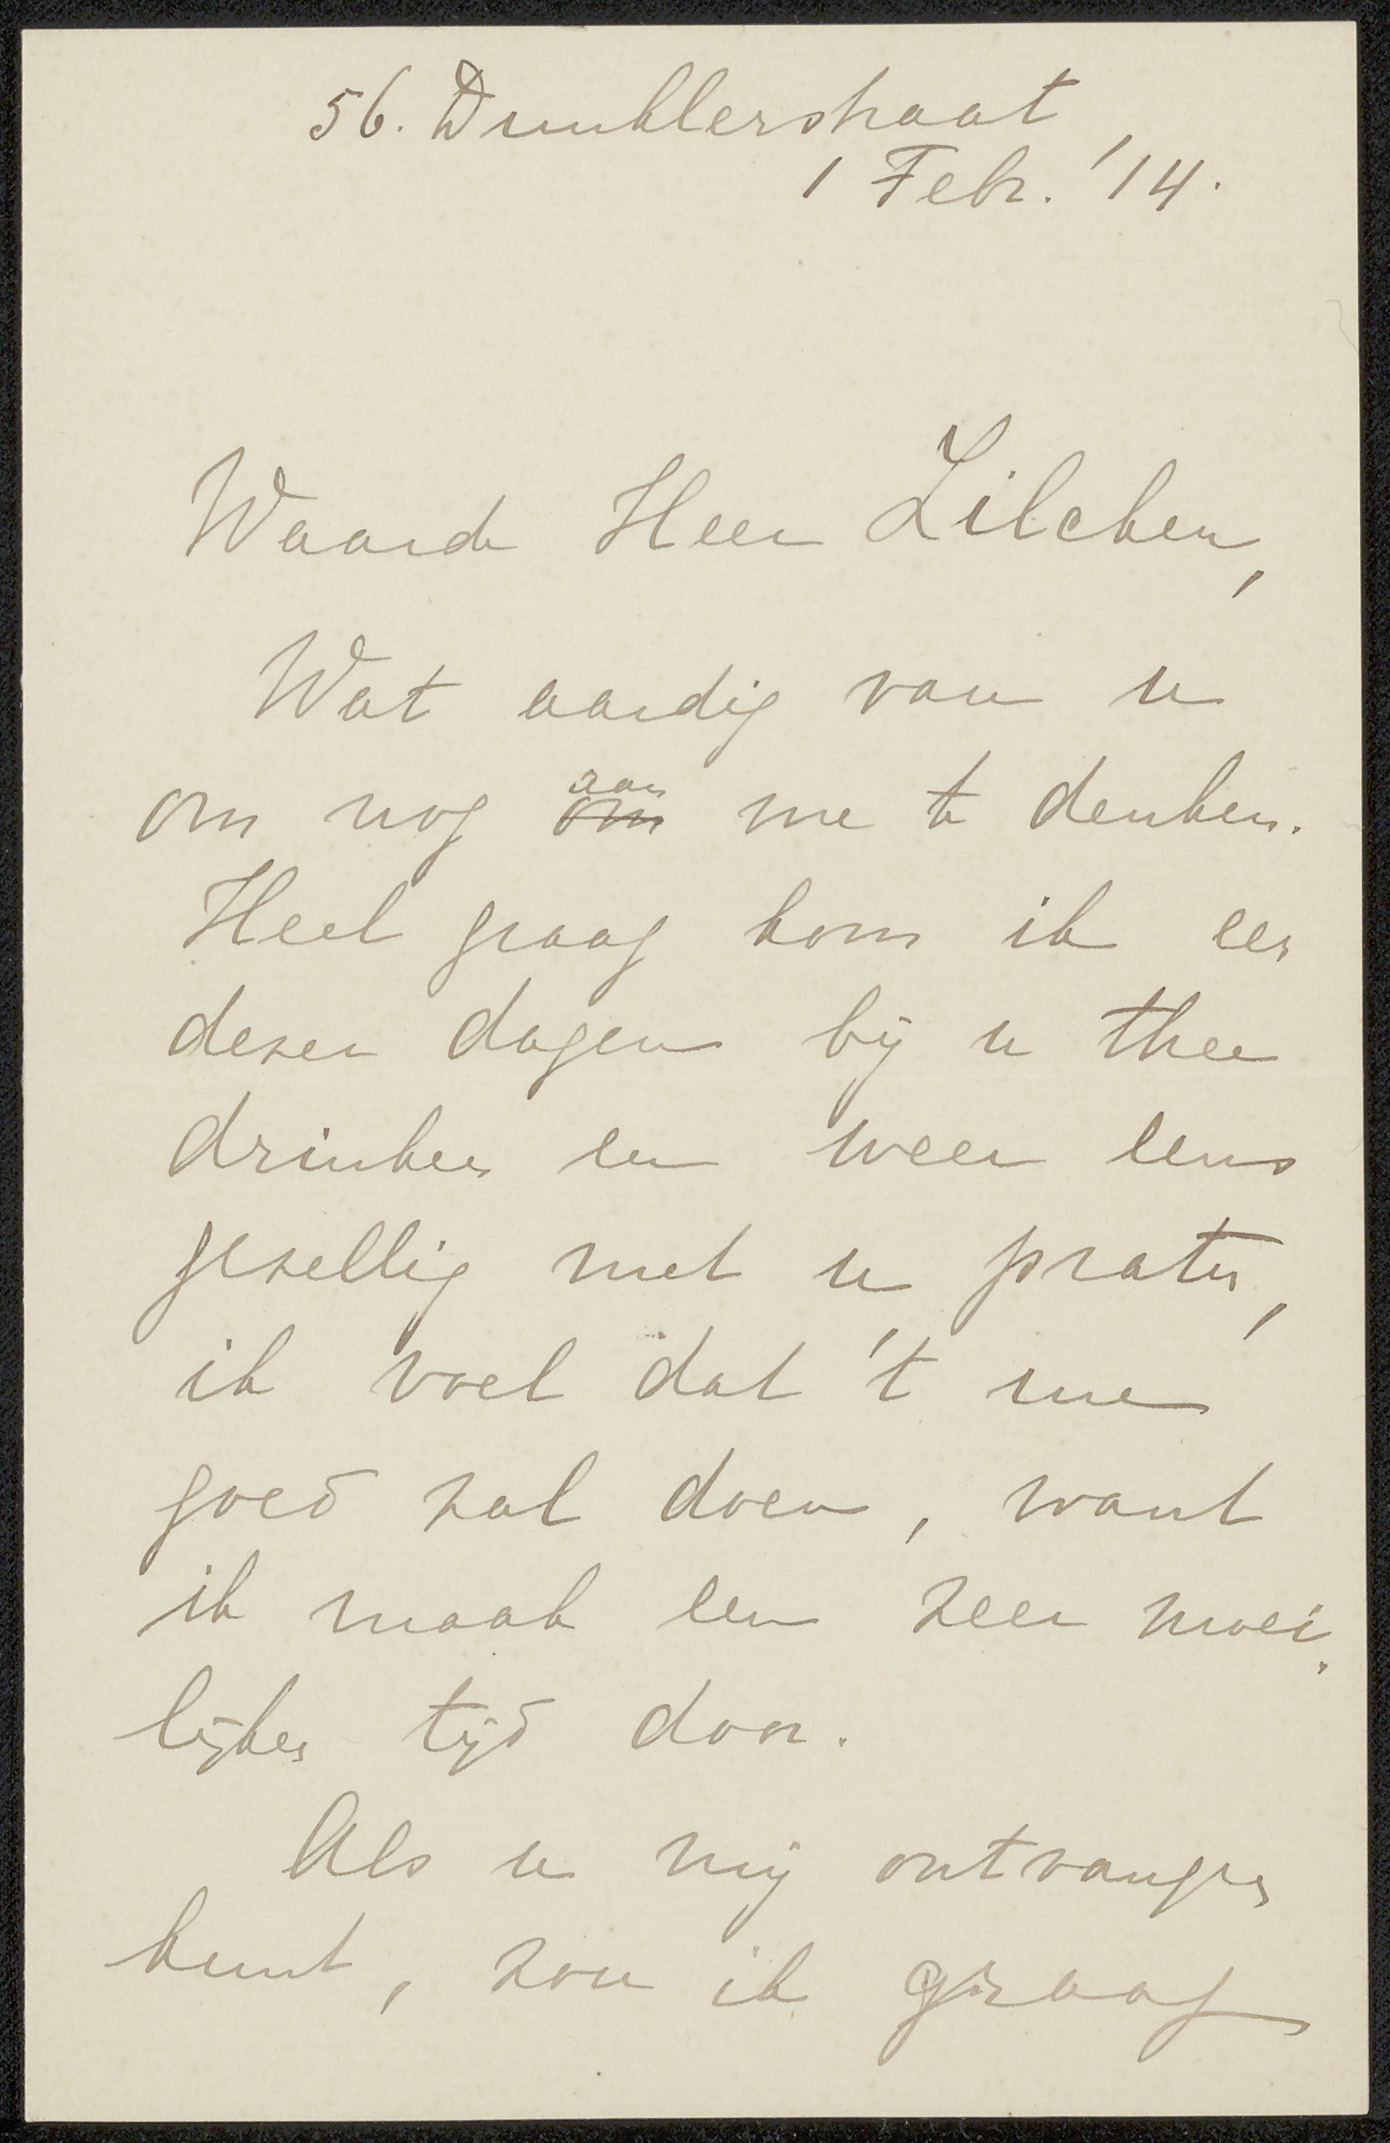 56. Dunklerstraat,
1 Febr. '14.
Waarde Heer Zilcken,
Wat aardig van u
om nog ~~om~~ aan me te denken.
Heel graag kom ik een
dezer dagen bij u thee
drinken en weer eens
gezellig met u praten,
ik voel dat 't me
goed zal doen, want
ik maak een zeer moei-
lijken tijd door.
Als u mij ontvangen
kunt, zou ik graag